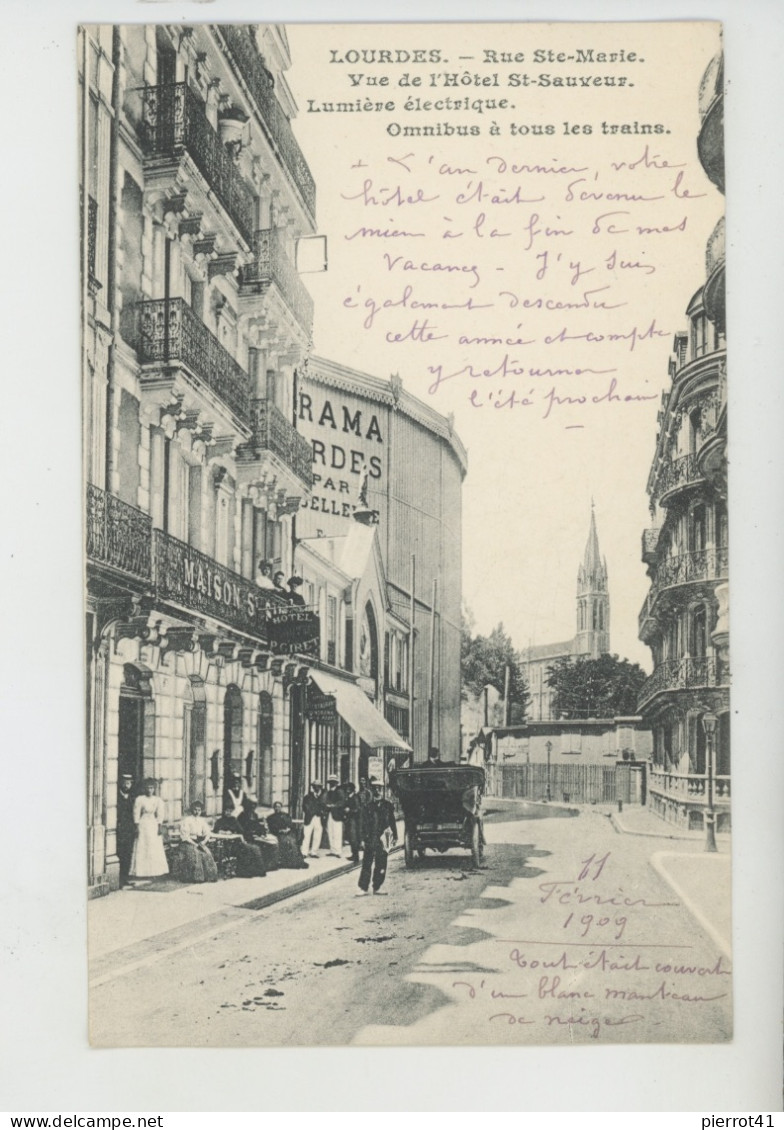 LOURDES. — Rue Ste-Marie.
Vue de l'Hôtel St-Sauveur.
Lumière électrique.
Omnibus à tous les trains.
+ L'an dernier, votre
hôtel était devenu le
mien à la fin de mes
vacances - J'y suis
également descendu
cette année et compte
y retourner
l'été prochain
RAMA
RDES
PAR
MAISON S
HOTEL
P. CIRET
11
Février
1909
Tout était couvert
d'un blanc manteau
de neige
pierrot41